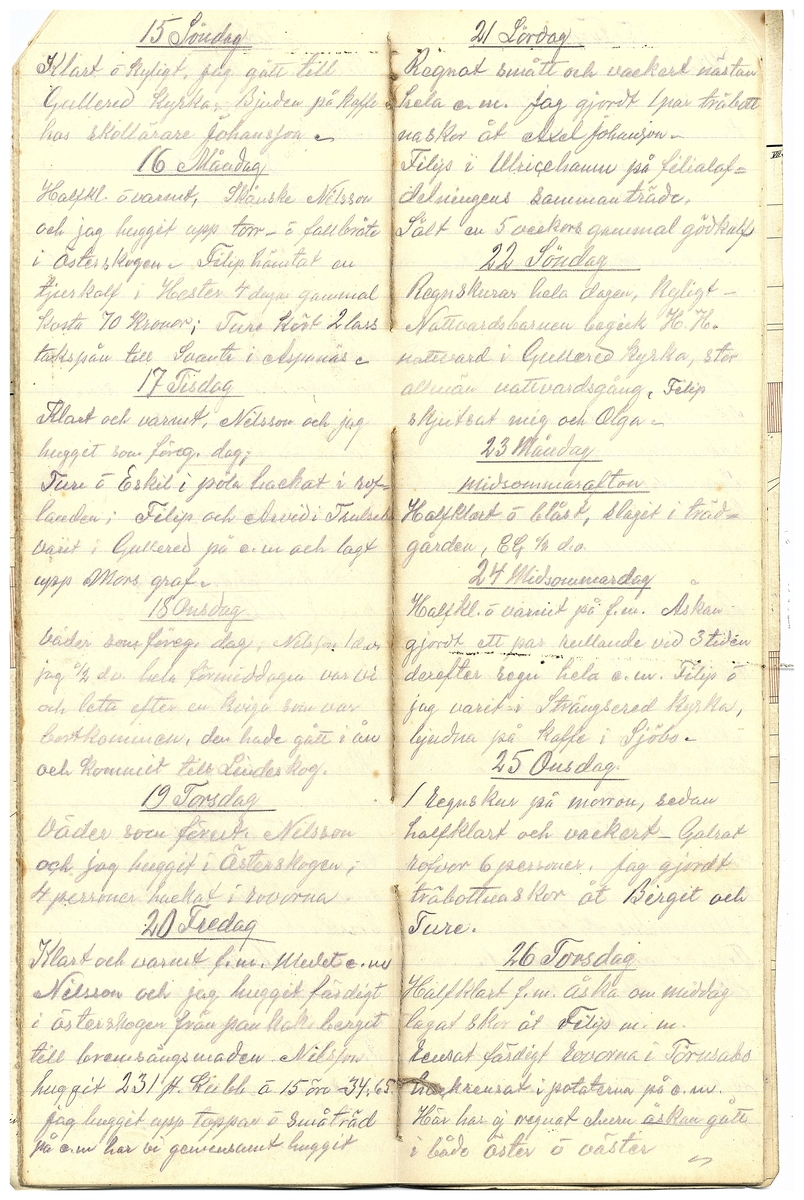 15 Söndag
Klart ö kyligt, jag gått till
Gullered kyrka, Bjuden på kaffe
hos skollärare Johansson
16 Måndag
Halfkl. ö varmt, Skånske Nilsson
och jag huggit upp torr- ö fallbråte
i Österskogen. Filip hämtat en
tjurkalf i Hester 4 dagar gammal
kosta 70 Kronor; Ture kört 2 lass
takspån till Svante i Aspenäs
17 Tisdag
Klart och varmt, Nilsson och jag
huggit som föreg. dag;
Ture ö Eskil i pöla hackat i rof-
landen; Filip och Arvid i
varit i Gullered på e.m och lagt
upp Mors graf.
18 Onsdag
Väder som föreg. dag, Nilsson 1 d.v.
jag ö 1/2 d.v. hela förmiddagen var vi
och leta efter en kviga som var
bortkommen, den hade gått i ån
och kommit till Lindeskog.
19 Torsdag
Väder som förut. Nilsson
och jag huggit i Österskogen;
4 personer hackat i rovorna
20 Fredag
Klart och varmt f.m. Mulet e.m
Nilsson och jag huggit färdigt
i österskogen från pankakeberget
till bremsängsmaden. Nilsson
huggit 231 st. Kubb à 15 öre - 34,65
jag huggit upp toppar ö småträd
på e.m har vi gemensamt huggit
21 Lördag
Regnat smått och vackert nästan
hela e.m. jag gjordt 1 par träbott
naskor åt Axel Johansson
Filip i Ulricehamn på filialaf=
delningens sammanträde.
Sålt en 5 veckors gammal gödkalf
22 Söndag
Regnskurar hela dagen, Kyligt -
Nattvardsbarnen begick H. H.
nattvard i Gullered kyrka, stor
allmän nattvardsgång, Filip
skjutsat mig och Olga
23 Måndag
midsommarafton
Halfklart ö blåst, slagit i träd=
gården, EG 1/2 d.v.
24 Midsommardag
Halfkl. ö varmt på f.m. Åskan
gjordt ett par rullande vid 3 tiden
derefter regn hela e.m. Filip ö
jag varit i Strängsered kyrka,
bjudna på kaffe i Sjöbo
25 Onsdag
1 Regnskur på morron, sedan
halfklart och vackert - Galrat
rofvor 6 personer. jag gjordt
träbottnaskor åt Birgit och
Ture.
26 Torsdag
Halfklart f.m. åska om middag
lagat skor åt Filip m. m.
Rensat färdigt Rovorna i Törnsabo
krensat i potaterna på e.m.
Här har ej regnat churu åskan gått
i både öster ö väster